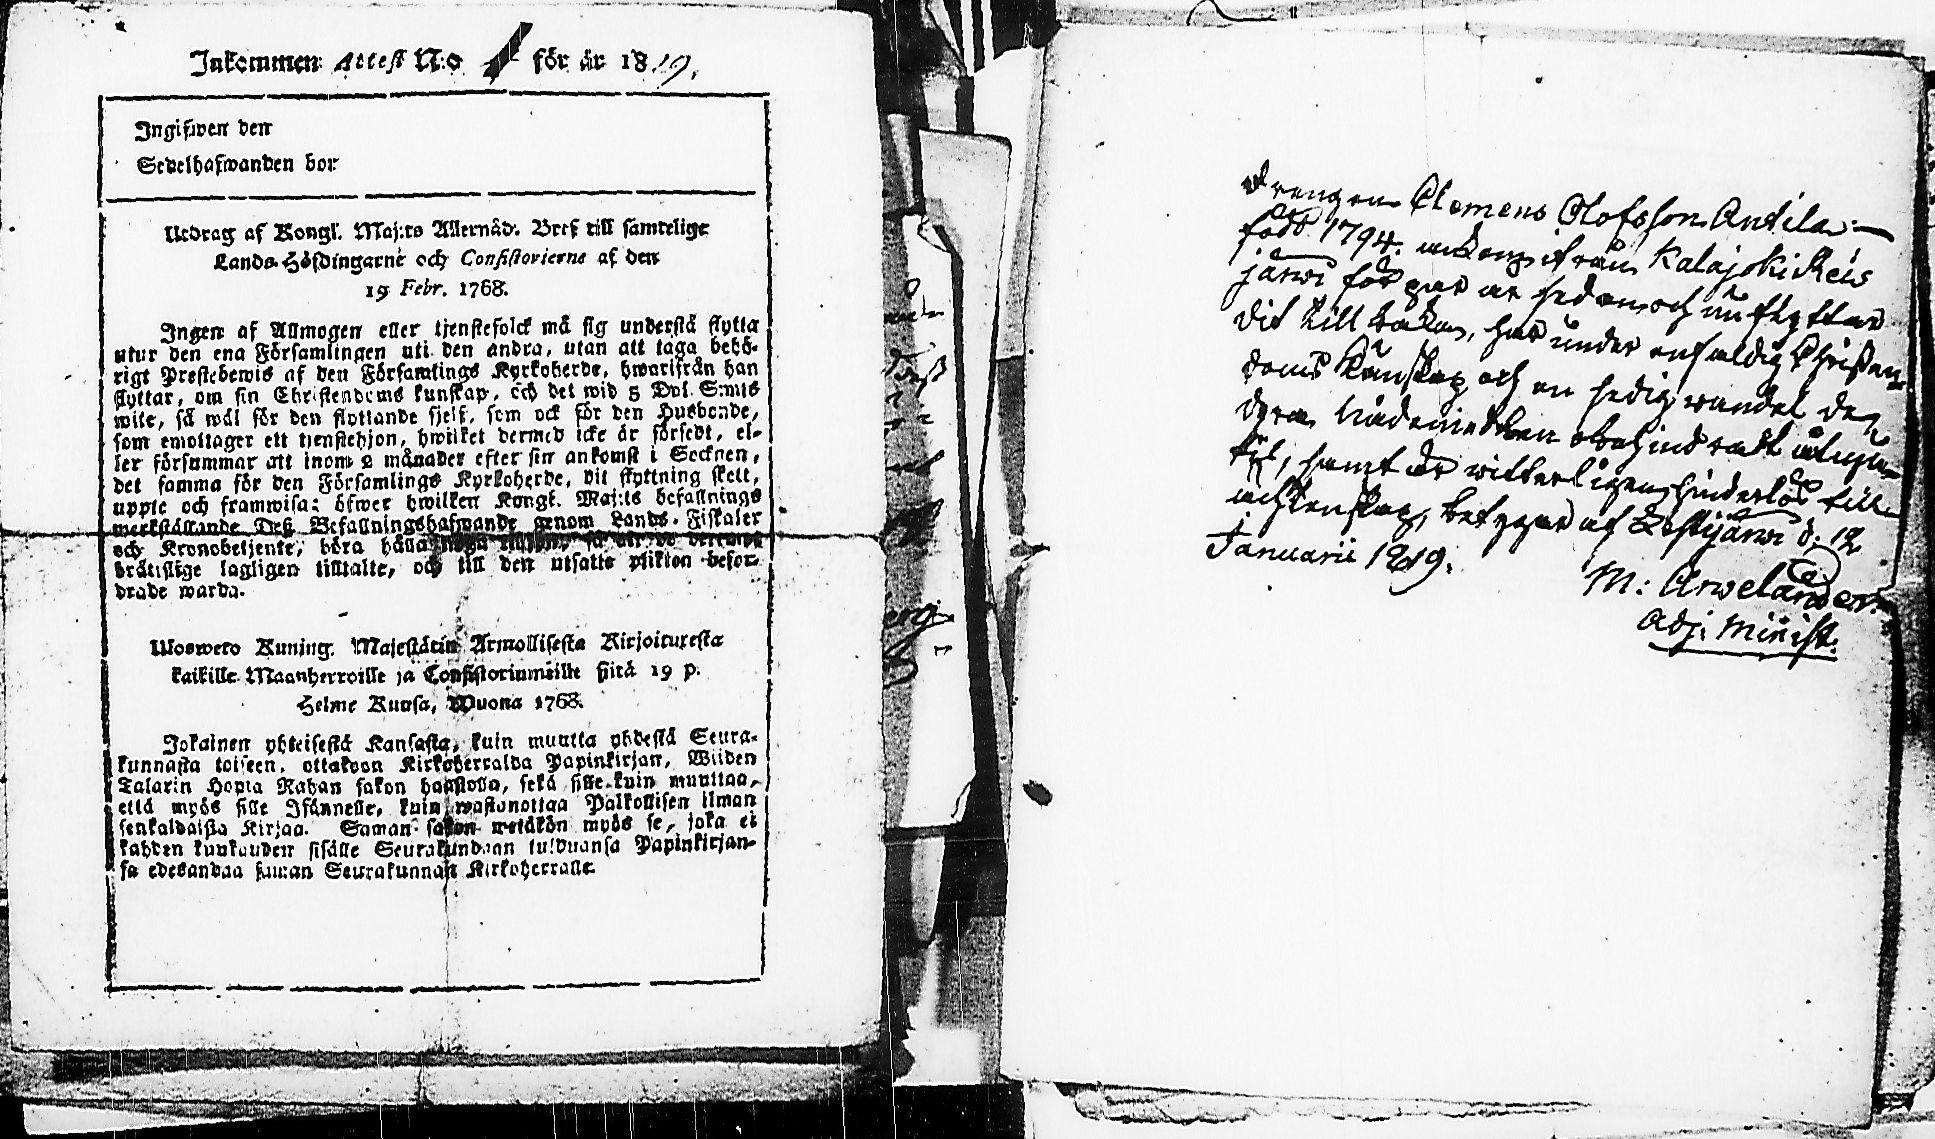 Inkommen Attest N:o 1 för år 1819.
Ingifwen den
Sedelhafwanden bor
Utdrag af Kongl. Maj:ts Allernåd. Bref till samtelige
Lands-Höfdingarne och Consistorierne af den
19 Febr. 1768.
Ingen af Allmogen eller tjenstefolck må sig understå flytta
utur den ena Församlingen uti den andra, utan att taga behö-
rigt Prestebewis af den Församlings Kyrkoherde, hwarifrån han
flyttar, om sin Christendoms kunskap, och det wid 5 Dal. S:mts
wite, så wäl för den flyttande sjelf, som ock för den Husbonde,
som emottager ett tjenstehjon, hwilket dermed icke är försedt, el-
ler försummar att inom 2 månader efter sin ankomst i Socknen,
det samma för den Församlings Kyrkoherde, dit flyttning skett,
uppte och framwisa: öfwer hwilken Kongl. Maj:ts befallnings
werkställande Deß Befallningshafwande genom Lands-Fiskaler
och Kronobetjente, böra hålla noga tillsyn, så att de
brätslige lagligen tilltalte, och till den utsatte plikten befor-
drade warda.
Ulosweto Kuning. Majestätin Armollisesta Kirjoituxesta
kaikille Maanherroille ja Consistoriumeille siitä 19 p.
Helme Kuusa, Wuona 1768.
Jokainen yhteisestä Kansasta, kuin muutta yhdestä Seura-
kunnasta toiseen, ottakoon Kirkoherralda Papinkirjan, Wiiden
Talarin Hopia Rahan sakon haastolla, sekä sille kuin muuttaa,
että myös sille Isännelle, kuin wastanottaa Palkollisen ilman
senkaldaista Kirjaa. Saman sakon wetäkön myös se, joka ei
kahden kuukauden sisälle Seurakundaan tulduansa Papinkirjan-
sa edesandaa saman Seurakunnan Kirkoherralle.
Drengen Clemens Olofsson Antila
född 1794. ankom ifrån Kalajoki Reis
järwi för par år sedan och nu flyttar
dit tillbaka, har under enfaldig Christen-
doms Kunskap och en sedig wandel de
dyra Nådemedlen obehindradt
samt är witterligen hinderlös till
ächtenskap, betygar af Lestijärwi d. 12
Januarii 1819.
M: Arwelander
Adj: Minist.